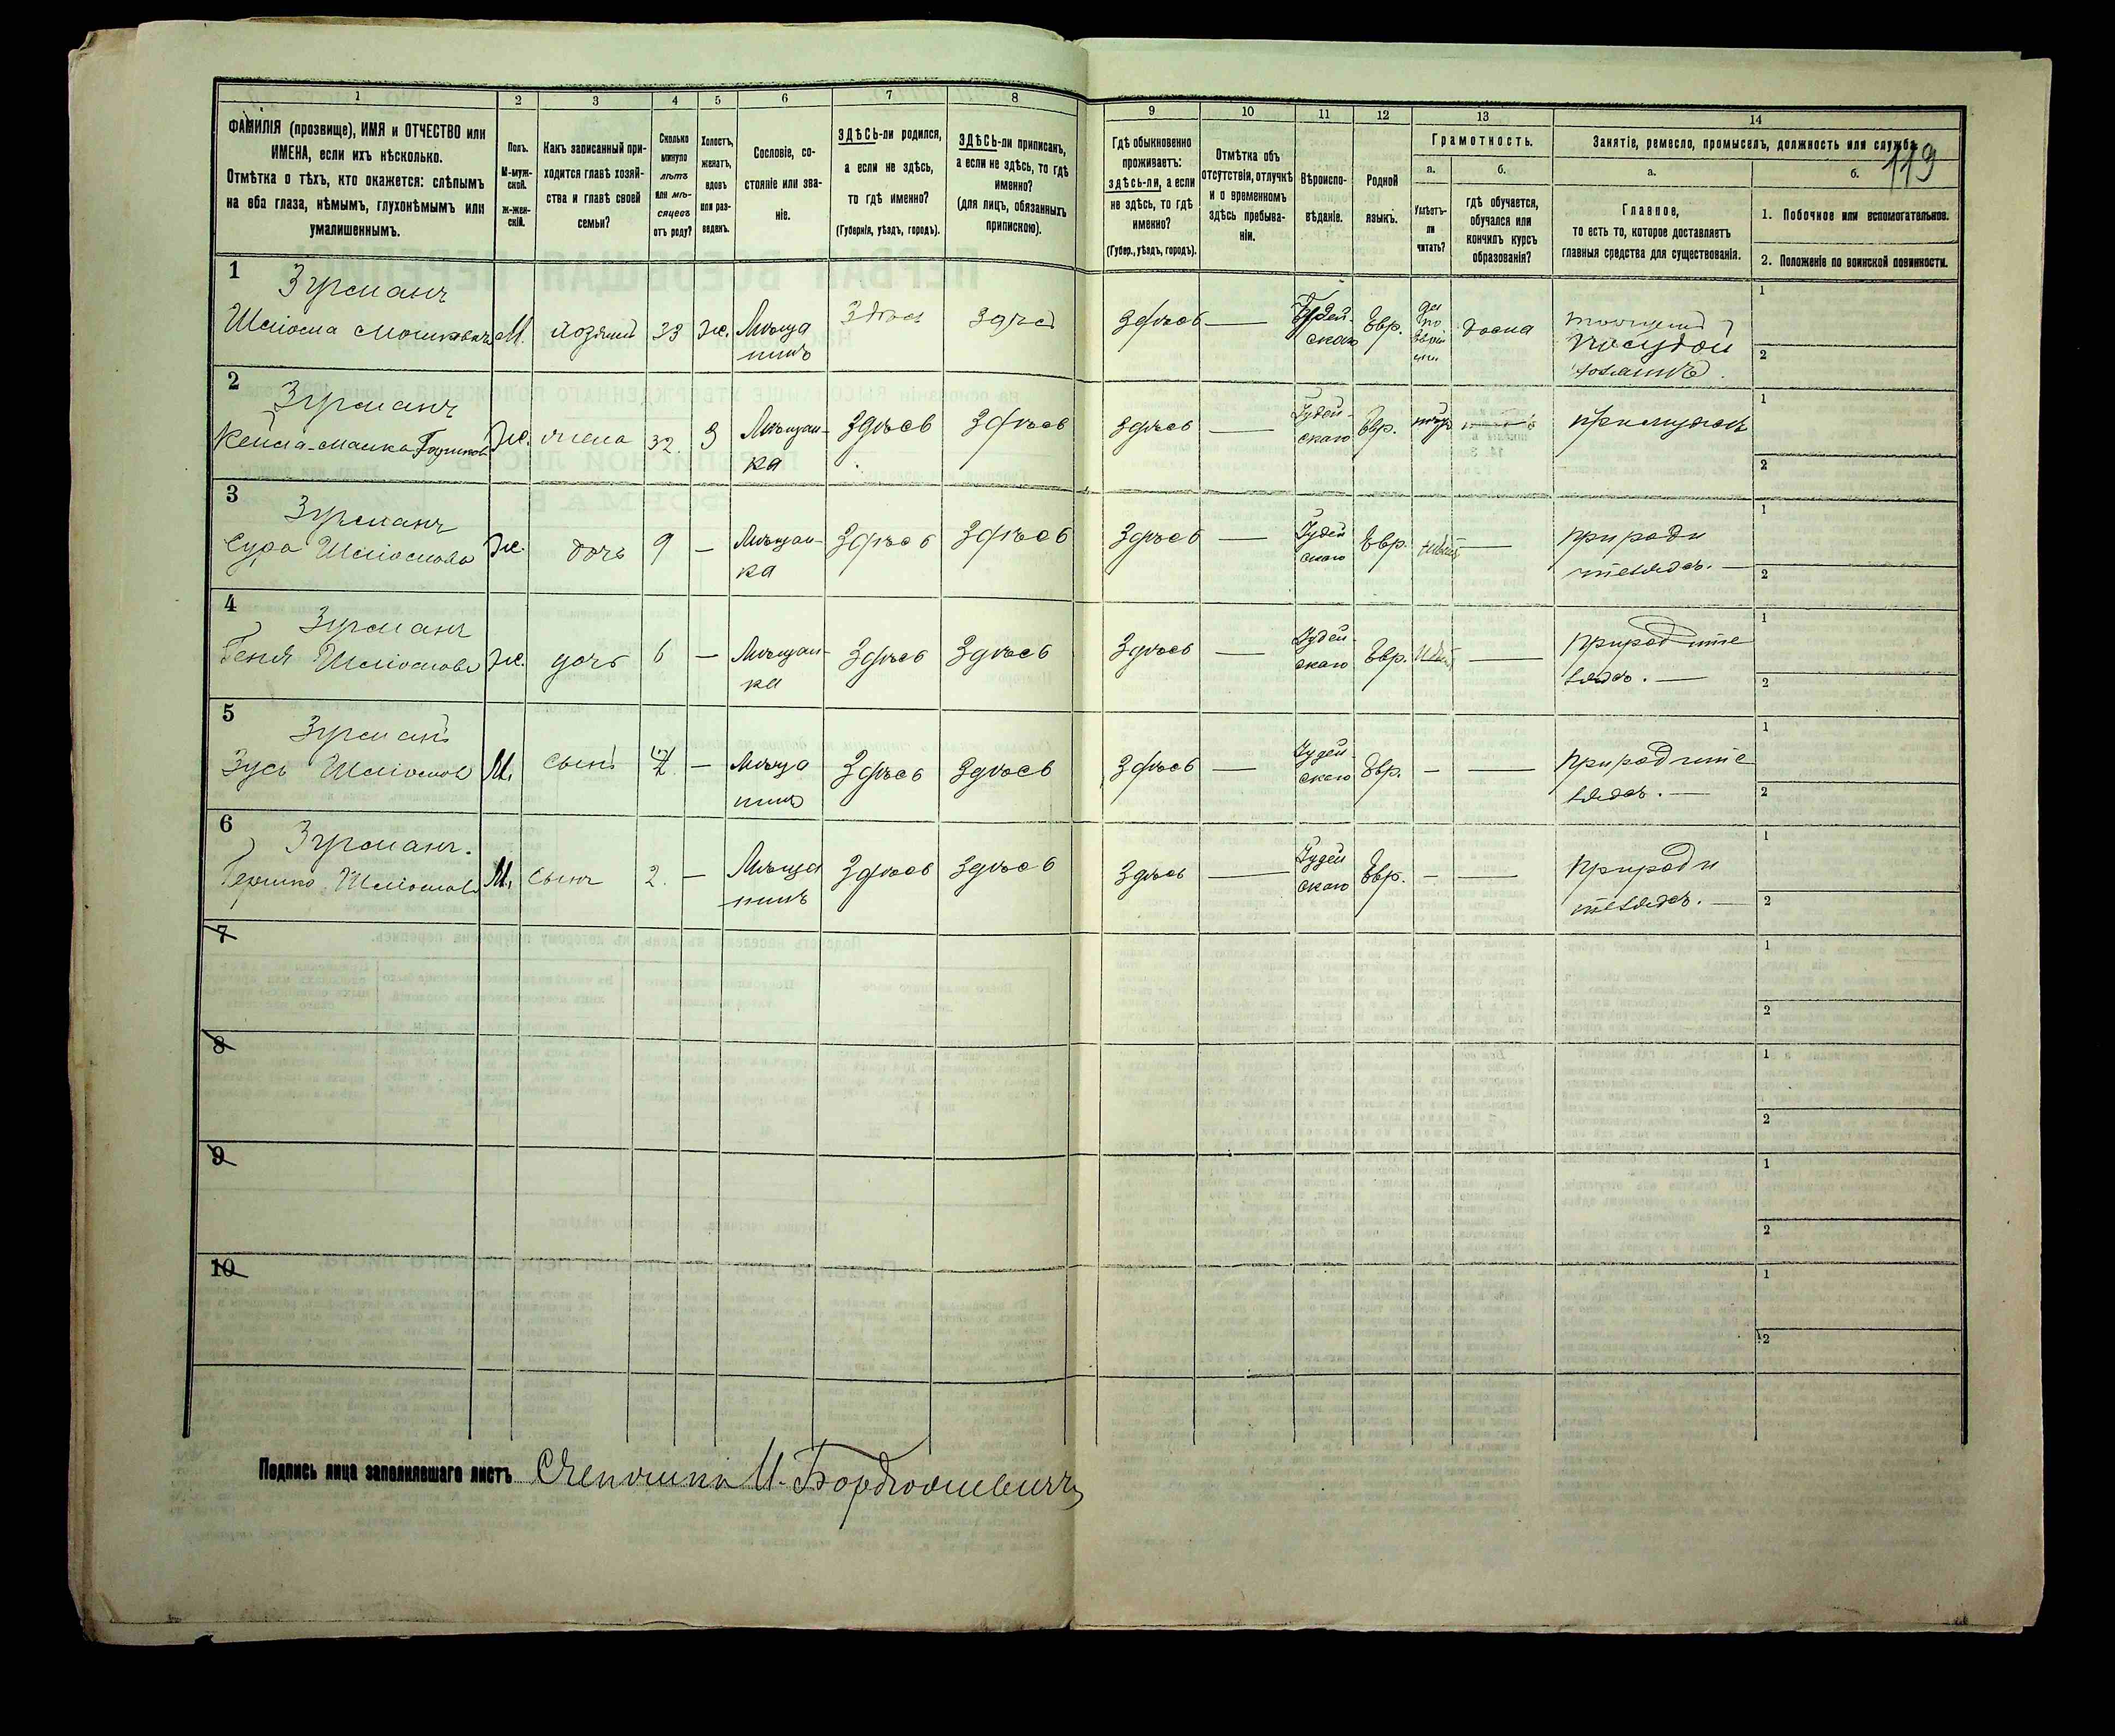 119
1 2 3 4 5 6 7 8 9 10 11 12 13 14
ФАМИЛІЯ (прозвище), ИМЯ и ОТЧЕСТВО или
ИМЕНА, если ихъ нѣсколько.
Отмѣтка о тѣхъ, кто окажется: слѣпымъ
на оба глаза, нѣмымъ, глухонѣмымъ или
умалишеннымъ.
Полъ.
М-муж-
ской.
ж-жен-
скій.
Какъ записанный при-
ходится главѣ хозяй-
ства и главѣ своей
семьи?
Сколько
минуло
лѣтъ
или мѣ-
сяцевъ
отъ роду?
Холостъ,
женатъ,
вдовъ
или раз-
веденъ.
Сословіе, со-
стояніе или зва-
ніе.
ЗДѢСЬ-ли родился,
а если не здѣсь,
то гдѣ именно?
(Губернія, уѣздъ, городъ).
ЗДѢСЬ-ли приписанъ,
а если не здѣсь, то гдѣ
именно?
(для лицъ, обязанныхъ
припискою).
Гдѣ обыкновенно
проживаетъ:
здѣсь-ли, а если
не здѣсь, то гдѣ
именно?
(Губер., уѣздъ, городъ).
Отмѣтка объ
отсутствіи, отлучкѣ
и о временномъ
здѣсь пребыва-
ніи.
Вѣроиспо-
вѣданіе.
Родной
языкъ.
Грамотность.
а.
Умѣетъ-
ли
читать?
б.
гдѣ обучается,
обучался или
кончилъ курсъ
образованія?
Занятіе, ремесло, промыселъ, должность или служба.
а.
Главное,
то есть то, которое доставляетъ
главныя средства для существованія.
б.
1. Побочное или вспомогательное.
2. Положеніе по воинской повинности.
1
Зусманъ
Шліома Мошковичъ М. хозяинъ 33 Же. Мѣща
нинъ
Здѣсь Здѣсь Здѣсь — Іудей-
скаго
Евр. дома
посудой
1
2
2
Зусманъ
Ж. жена 32. З Мѣщан-
ка
Здѣсь Здѣсь Здѣсь — Іудей-
скаго
Евр. при мужѣ
1
2
3
Зусманъ
Сура Шліомова Ж. дочь 9 — Мѣщан-
ка
Здѣсь Здѣсь Здѣсь — Іудей
скаго
Евр. — при роди
теляхъ. —
1
2
4
Зусманъ
Геня Шліомова Ж. дочь 6 — Мѣщан-
ка
Здѣсь Здѣсь Здѣсь — Іудей-
скаго
Евр. — при родите
ляхъ. —
1
2
5
Зусманъ
Зусь Шліомов М. сынъ — Мѣща
нинъ
Здѣсь Здѣсь Здѣсь — Іудей-
скаго
Евр. — — при родите
ляхъ. —
1
2
6
Зусманъ.
Гершко Шліомов М. сынъ 2. — Мѣща
нинъ
Здѣсь Здѣсь Здѣсь — Іудей
скаго
Евр. — — при роди
теляхъ. —
1
2
7
1
2
8
1
2
9
1
2
10
1
2
Подпись лица заполнявшаго листъ